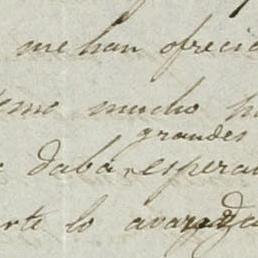 me han ofrecid
temo mucho h
grandes
daba esperan
rte lo avanza